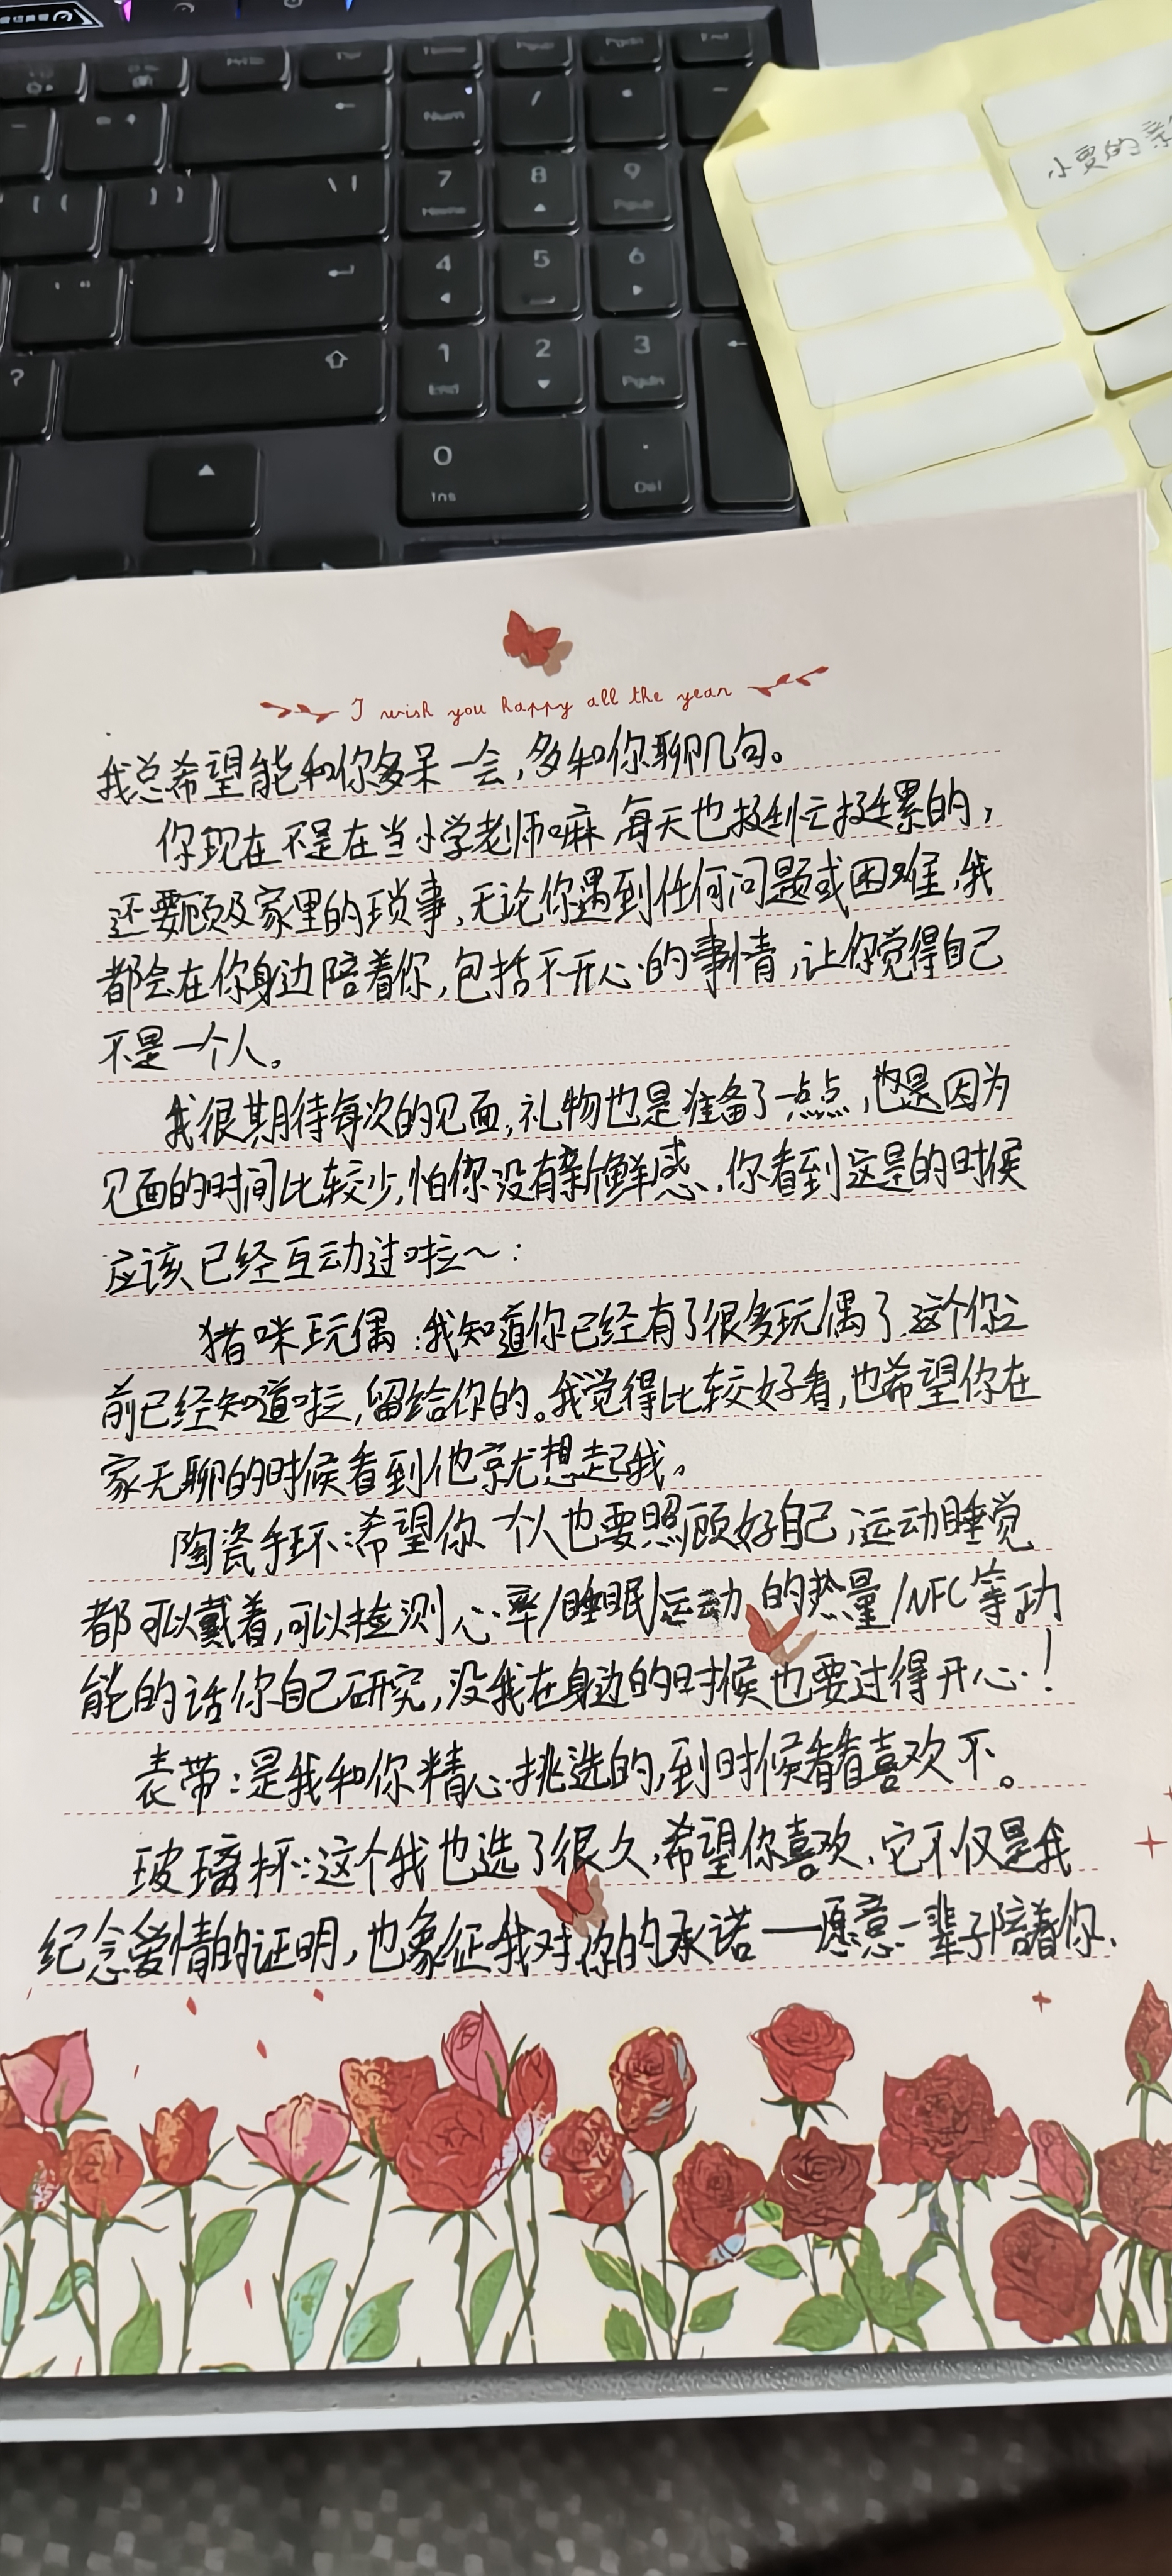 Num
/
7
Home
8
9
PgUp
4
5
6
1
End
2
3
PgDn
0
Ins
.
Del
?
小贾的亲
I wish you happy all the year
我总希望能和你多呆一会,多和你聊几句。
你现在不是在当小学老师嘛,每天也挺忙挺累的,
还要顾及家里的琐事,无论你遇到任何问题或困难,我
都会在你身边陪着你,包括不开心的事情,让你觉得自己
不是一个人。
我很期待每次的见面,礼物也是准备了一点点,也是因为
见面的时间比较少,怕你没有新鲜感,你看到这里的时候
应该已经互动过啦~:
猪咪玩偶:我知道你已经有了很多玩偶了,这个你之
前已经知道啦,留给你的。我觉得比较好看,也希望你在
家无聊的时候看到他就想起我。
陶瓷手环:希望你一个人也要照顾好自己,运动睡觉
都可以戴着,可以检测心率/睡眠/运动的热量/NFC等功
能的话你自己研究,没我在身边的时候也要过得开心!
表带:是我和你精心挑选的,到时候看看喜欢不。
玻璃杯:这个我也选了很久,希望你喜欢,它不仅是我
纪念爱情的证明,也象征我对你的承诺——愿意一辈子陪着你、